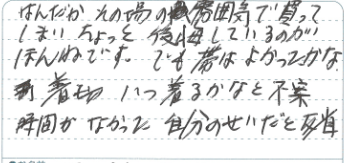 なんだか その場の雰囲気で買って
しまい ちょっと 後悔しているのが
ほんねです。でも帯はよかったかな
着物 いつ着るかなと不安
時間がなかった 自分のせいだと反省